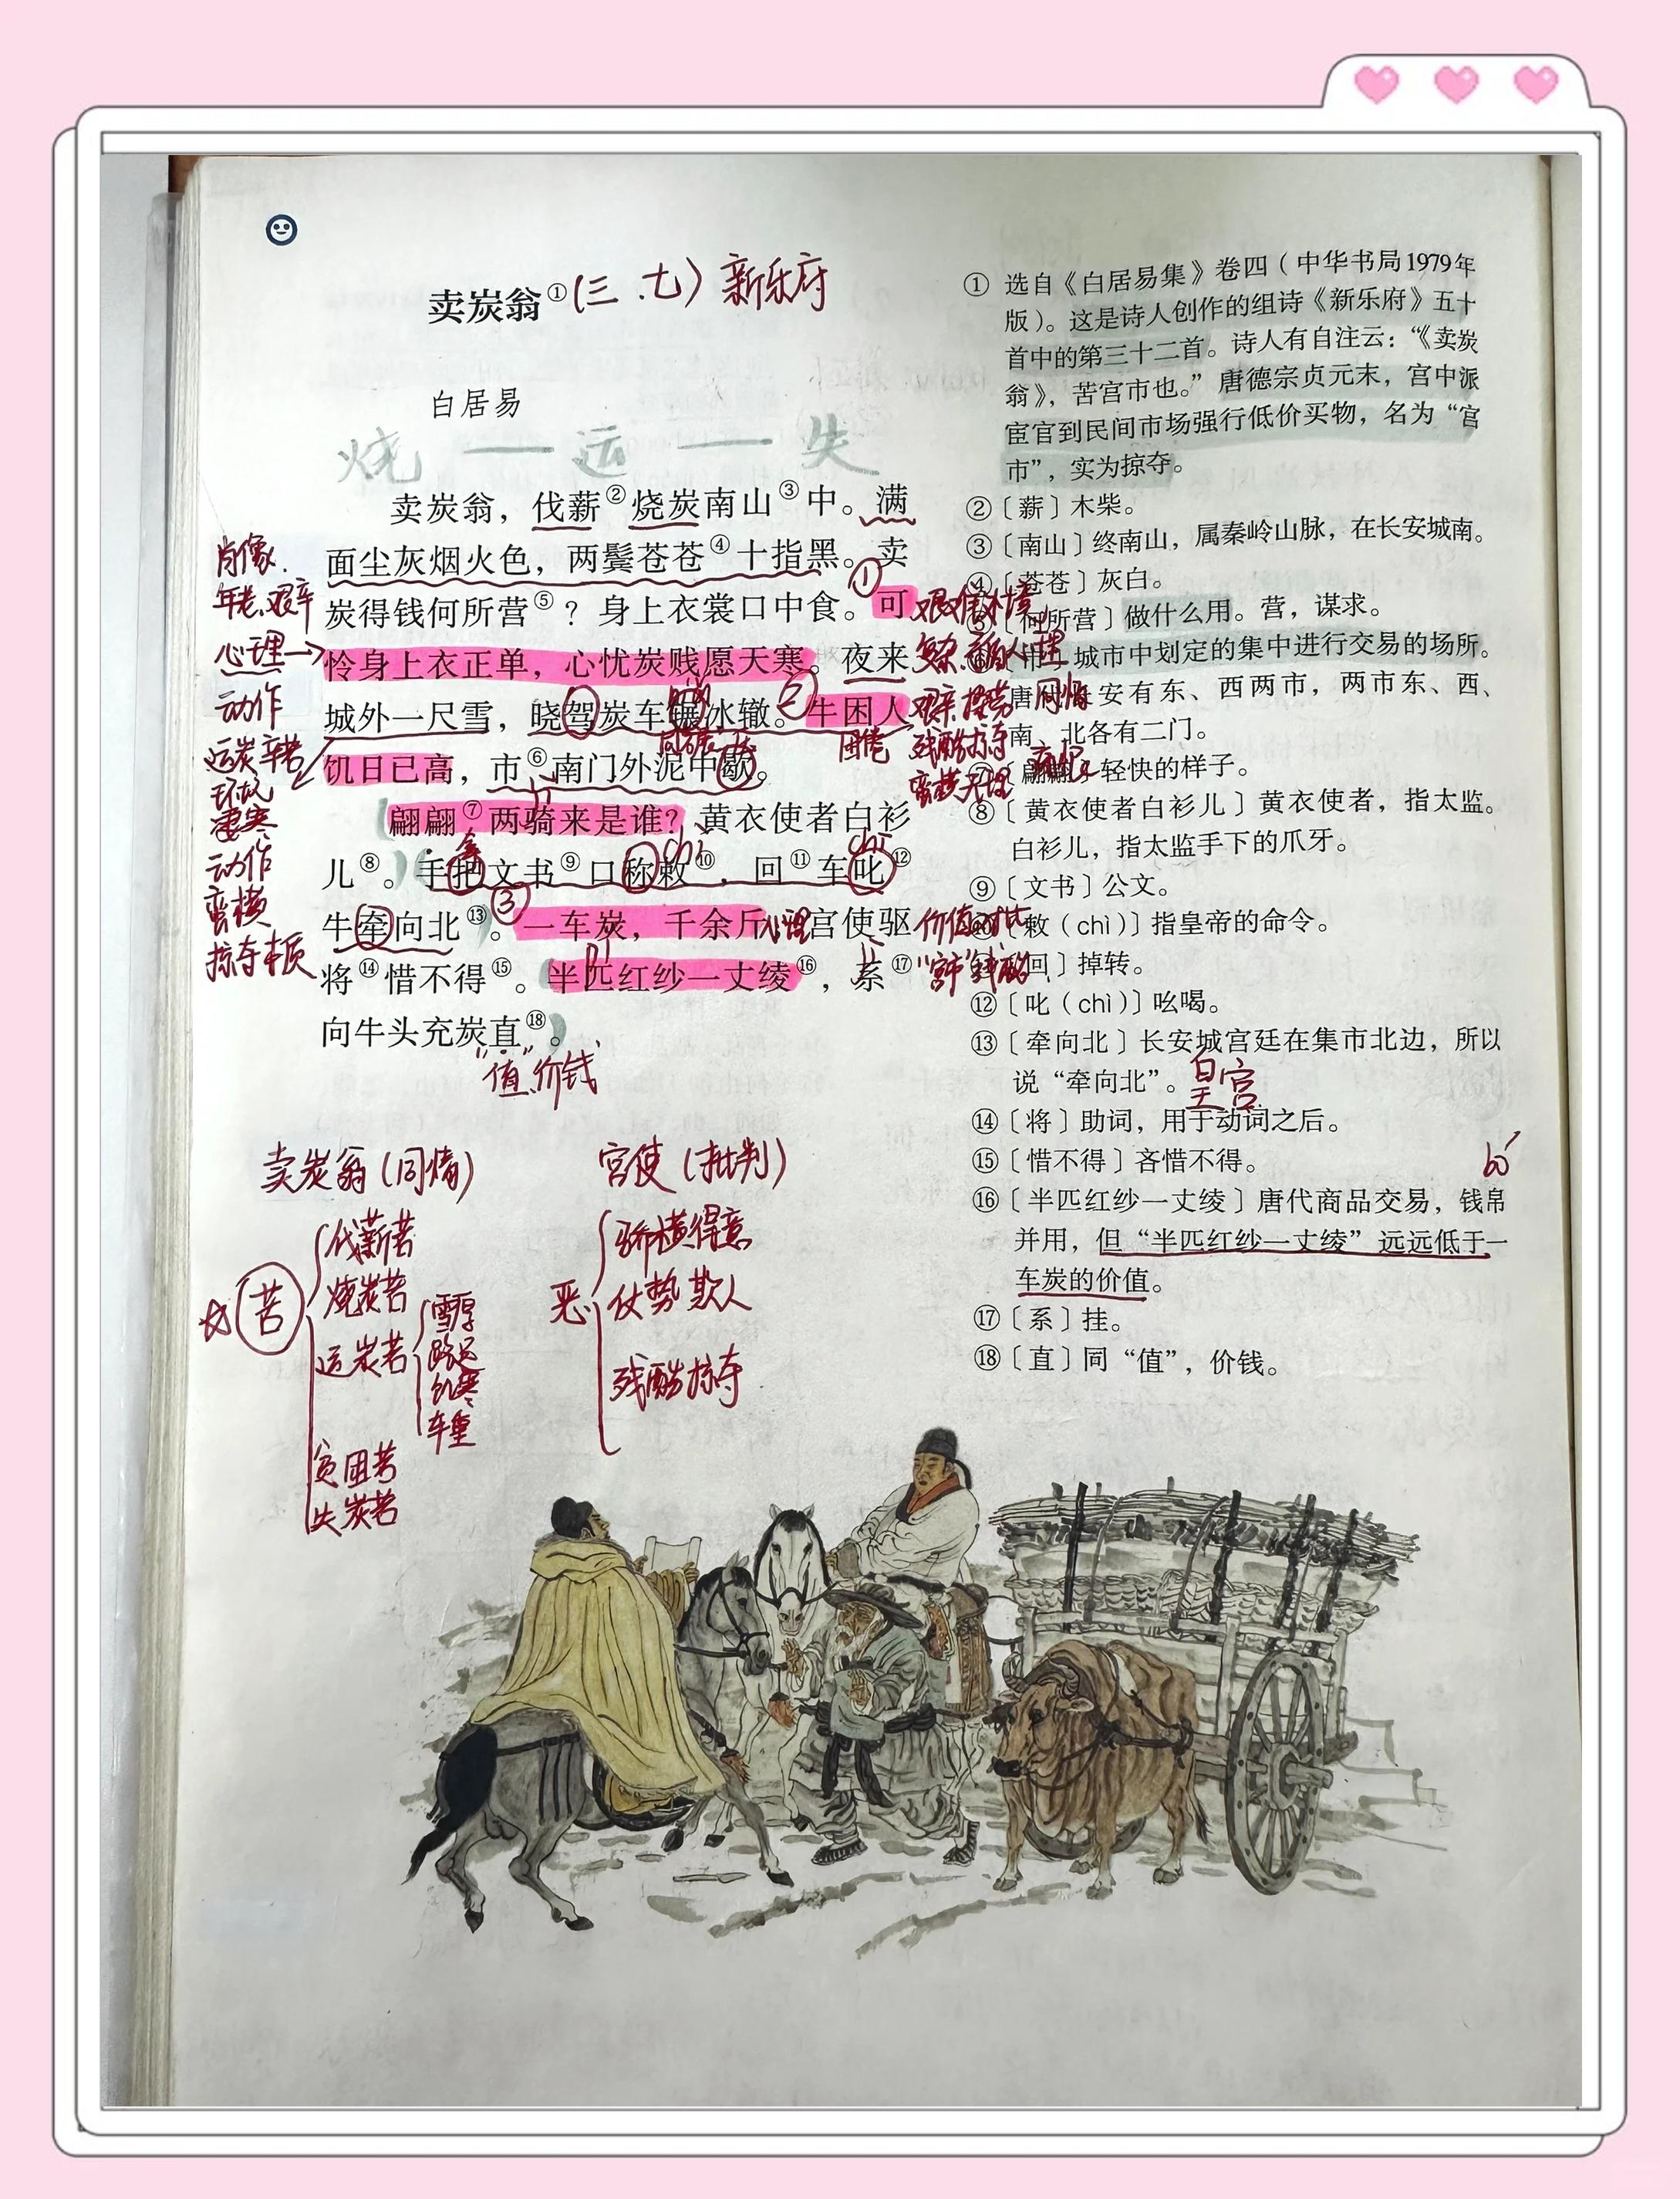 卖炭翁①(三.七)新乐府
白居易
烧——运——失
卖炭翁，伐薪②烧炭南山③中。满
面尘灰烟火色，两鬓苍苍④十指黑。卖
炭得钱何所营⑤？身上衣裳口中食。①可
怜身上衣正单，心忧炭贱愿天寒。夜来
城外一尺雪，晓驾炭车辗冰辙。②牛困人
饥日已高，市⑥南门外泥中歇。
困倦
翩翩⑦两骑来是谁？黄衣使者白衫
jì
拿
chì
chì
儿⑧。手把文书⑨口称敕⑩，回⑪车叱⑫
牛牵向北⑬。③一车炭，千余斤，宫使驱
将⑭惜不得⑮。半匹红纱一丈绫⑯，系⑰
向牛头充炭直⑱。
“值”价钱
肖像.
年老、艰辛
心理→
动作
运炭辛苦
环境
凄寒
动作
蛮横
掠夺本质
艰难
残酷掠夺
蛮横无理
价值对比
卖炭翁(同情)
☆苦
伐薪苦
烧炭苦
运炭苦
雪厚
路远
饥寒
车重
贫困苦
失炭苦
宫使(批判)
恶
骄横得意
仗势欺人
残酷掠夺
① 选自《白居易集》卷四（中华书局1979年
版）。这是诗人创作的组诗《新乐府》五十
首中的第三十二首。诗人有自注云：“《卖炭
翁》，苦宫市也。”唐德宗贞元末，宫中派
宦官到民间市场强行低价买物，名为“宫
市”，实为掠夺。
②〔薪〕木柴。
③〔南山〕终南山，属秦岭山脉，在长安城南。
④〔苍苍〕灰白。
⑤〔何所营〕做什么用。营，谋求。
⑥〔市〕城市中划定的集中进行交易的场所。
唐代长安有东、西两市，两市东、西、
南、北各有二门。
⑦〔翩翩〕轻快的样子。
⑧〔黄衣使者白衫儿〕黄衣使者，指太监。
白衫儿，指太监手下的爪牙。
⑨〔文书〕公文。
⑩〔敕（chì）〕指皇帝的命令。
⑪〔回〕掉转。
⑫〔叱（chì）〕吆喝。
⑬〔牵向北〕长安城宫廷在集市北边，所以
说“牵向北”。皇宫
⑭〔将〕助词，用于动词之后。
⑮〔惜不得〕吝惜不得。
bó
⑯〔半匹红纱一丈绫〕唐代商品交易，钱帛
并用，但“半匹红纱一丈绫”远远低于一
车炭的价值。
⑰〔系〕挂。
⑱〔直〕同“值”，价钱。